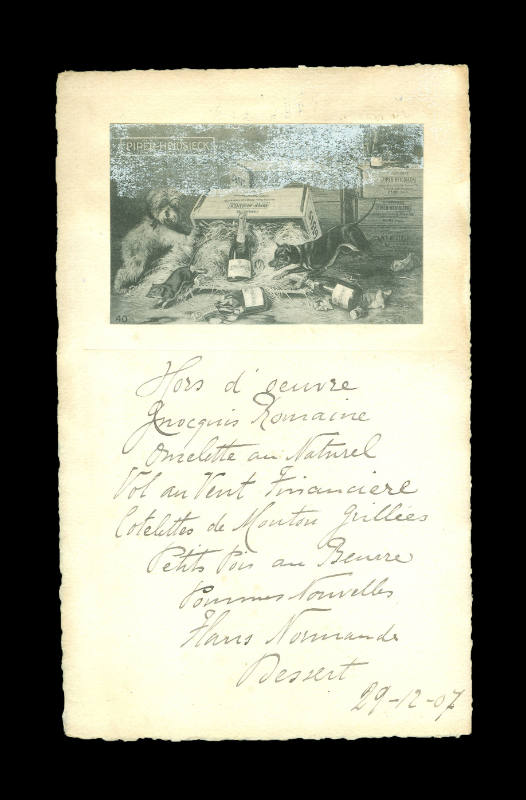 PIPER-HEIDSIECK
40
Hors d'oeuvre
Gnocquis Romaine
Omelette au Naturel
Vol au Vent Financiere
Cotelettes de Mouton Grillées
Petits Pois au Beurre
Pommes Nouvelles
Flans Normande
Dessert
29-12-07